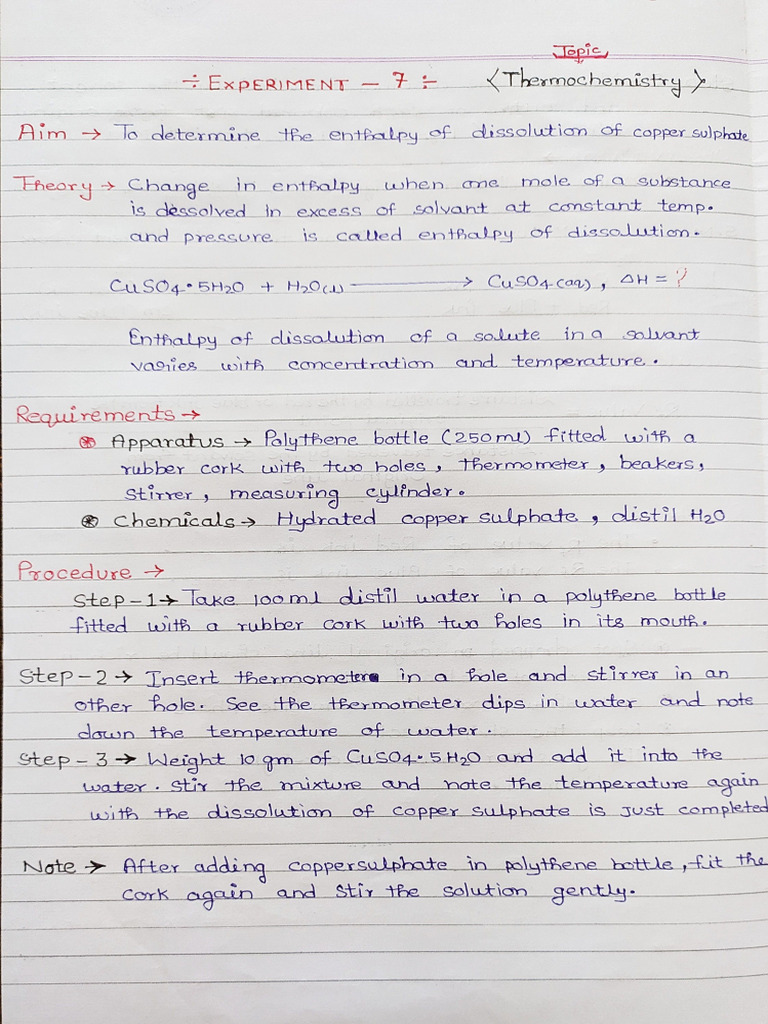 Topic
÷ EXPERIMENT – 7 ÷ <Thermochemistry>
Aim → To determine the enthalpy of dissolution of copper sulphate
Theory → Change in enthalpy when one mole of a substance
is dessolved in excess of solvant at constant temp.
and pressure is called enthalpy of dissolution.
CuSO4•5H2O + H2O(l) → CuSO4(aq), ΔH = ?
Enthalpy of dissolution of a solute in a solvant
varies with concentration and temperature.
Requirements →
Apparatus → Polythene bottle (250ml) fitted with a
rubber cork with two holes, thermometer, beakers,
stirrer, measuring cylinder.
Chemicals → Hydrated copper sulphate, distil H2O
Procedure →
Step-1 → Take 100ml distil water in a polythene bottle
fitted with a rubber cork with two holes in its mouth.
Step-2 → Insert thermometer in a hole and stirrer in an
other hole. See the thermometer dips in water and note
down the temperature of water.
Step-3 → Weight 10 gm of CuSO4•5H2O and add it into the
water. Stir the mixture and note the temperature again
with the dissolution of copper sulphate is just completed
Note → After adding coppersulphate in polythene bottle, fit the
cork again and stir the solution gently.